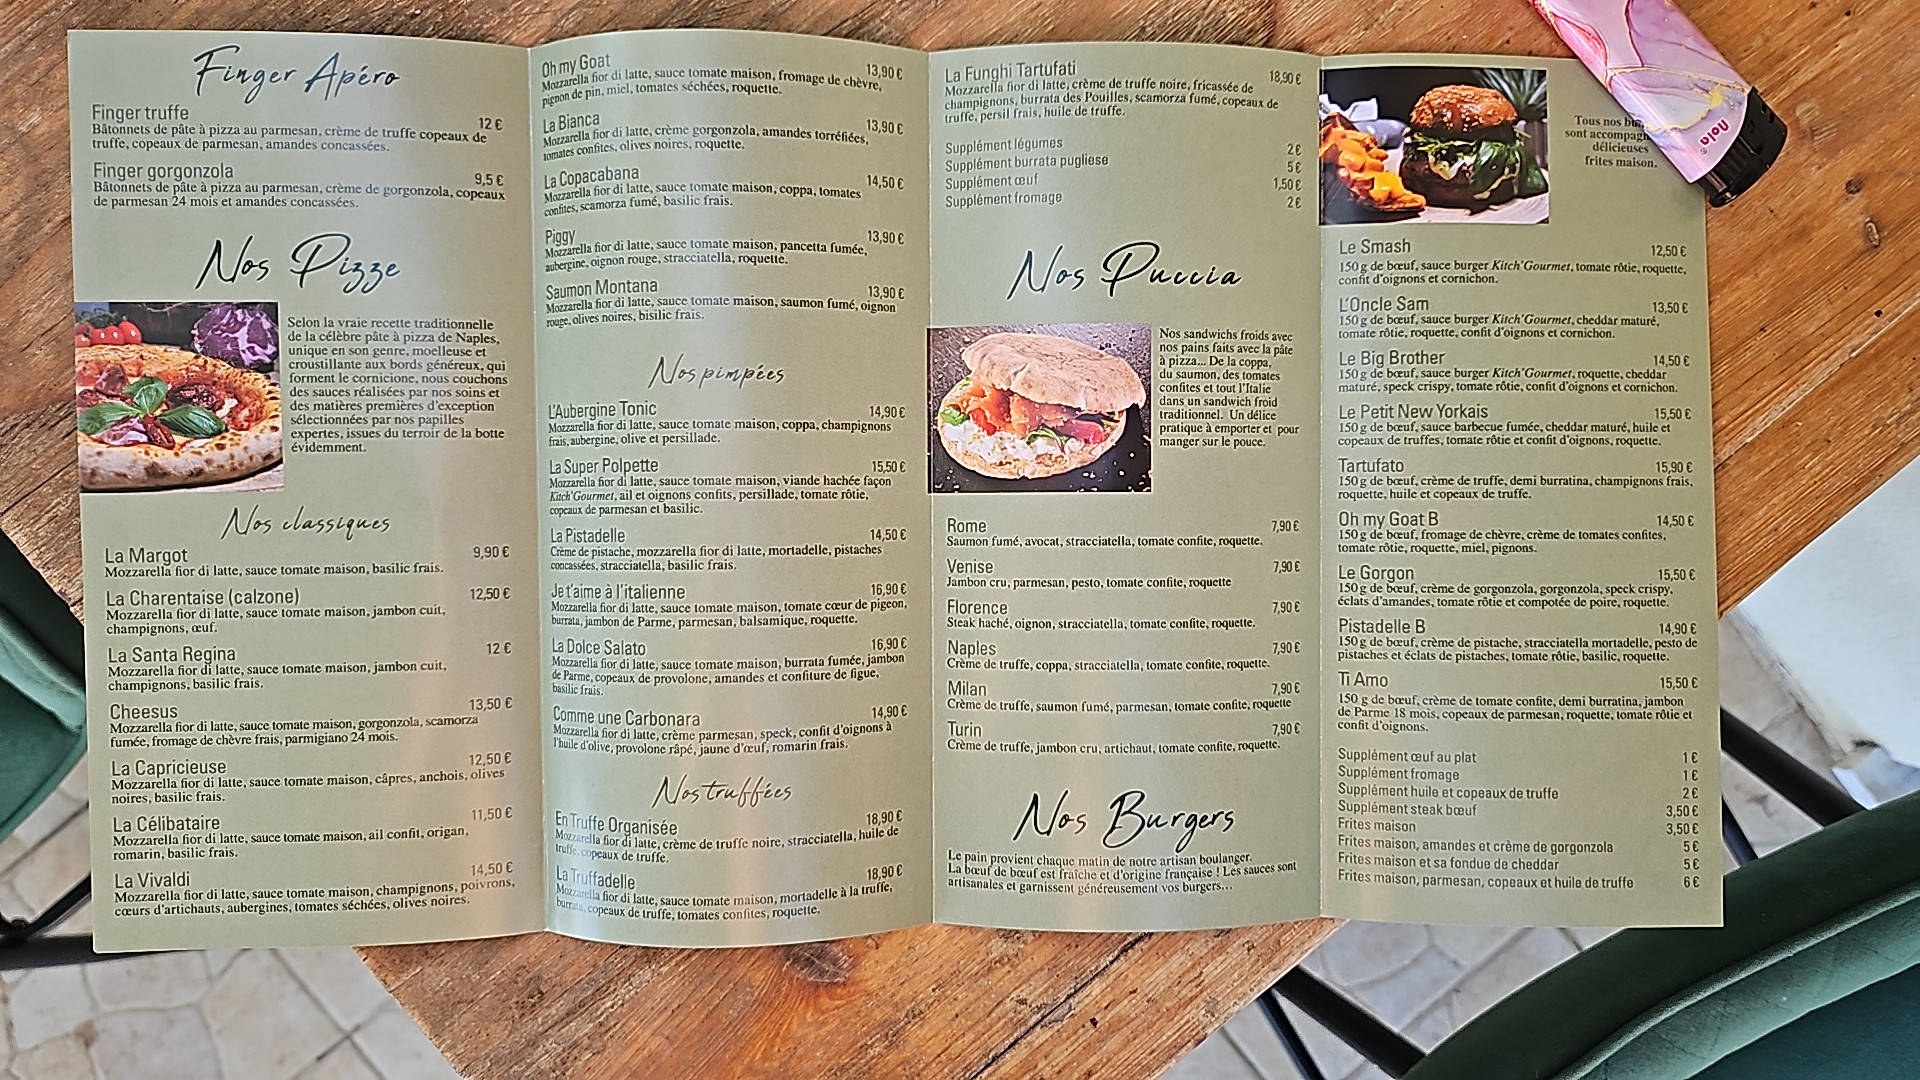 Finger Apéro
Finger truffe 12 €
Bâtonnets de pâte à pizza au parmesan, crème de truffe copeaux de
truffe, copeaux de parmesan, amandes concassées.
Finger gorgonzola 9,5 €
Bâtonnets de pâte à pizza au parmesan, crème de gorgonzola, copeaux
de parmesan 24 mois et amandes concassées.
Nos Pizze
Selon la vraie recette traditionnelle
de la célèbre pâte à pizza de Naples,
unique en son genre, moelleuse et
croustillante aux bords généreux, qui
forment le cornicione, nous couchons
des sauces réalisées par nos soins et
des matières premières d'exception
sélectionnées par nos papilles
expertes, issues du terroir de la botte
évidemment.
Nos classiques
La Margot 9,90 €
Mozzarella fior di latte, sauce tomate maison, basilic frais.
La Charentaise (calzone) 12,50 €
Mozzarella fior di latte, sauce tomate maison, jambon cuit,
champignons, œuf.
La Santa Regina 12 €
Mozzarella fior di latte, sauce tomate maison, jambon cuit,
champignons, basilic frais.
Cheesus 13,50 €
Mozzarella fior di latte, sauce tomate maison, gorgonzola, scamorza
fumée, fromage de chèvre frais, parmigiano 24 mois.
La Capricieuse 12,50 €
Mozzarella fior di latte, sauce tomate maison, câpres, anchois, olives
noires, basilic frais.
La Célibataire 11,50 €
Mozzarella fior di latte, sauce tomate maison, ail confit, origan,
romarin, basilic frais.
La Vivaldi 14,50 €
Mozzarella fior di latte, sauce tomate maison, champignons, poivrons,
cœurs d'artichauts, aubergines, tomates séchées, olives noires.
Oh my Goat 13,90 €
Mozzarella fior di latte, sauce tomate maison, fromage de chèvre,
pignon de pin, miel, tomates séchées, roquette.
La Bianca 13,90 €
Mozzarella fior di latte, crème gorgonzola, amandes torréfiées,
tomates confites, olives noires, roquette.
La Copacabana 14,50 €
Mozzarella fior di latte, sauce tomate maison, coppa, tomates
confites, scamorza fumé, basilic frais.
Piggy 13,90 €
Mozzarella fior di latte, sauce tomate maison, pancetta fumée,
aubergine, oignon rouge, stracciatella, roquette.
Saumon Montana 13,90 €
Mozzarella fior di latte, sauce tomate maison, saumon fumé, oignon
rouge, olives noires, bisilic frais.
Nos pimpées
L'Aubergine Tonic 14,90 €
Mozzarella fior di latte, sauce tomate maison, coppa, champignons
frais, aubergine, olive et persillade.
La Super Polpette 15,50 €
Mozzarella fior di latte, sauce tomate maison, viande hachée façon
Kitch'Gourmet, ail et oignons confits, persillade, tomate rôtie,
copeaux de parmesan et basilic.
La Pistadelle 14,50 €
Crème de pistache, mozzarella fior di latte, mortadelle, pistaches
concassées, stracciatella, basilic frais.
Je t'aime à l'italienne 16,90 €
Mozzarella fior di latte, sauce tomate maison, tomate cœur de pigeon,
burrata, jambon de Parme, parmesan, balsamique, roquette.
La Dolce Salato 16,90 €
Mozzarella fior di latte, sauce tomate maison, burrata fumée, jambon
de Parme, copeaux de provolone, amandes et confiture de figue,
basilic frais.
Comme une Carbonara 14,90 €
Mozzarella fior di latte, crème parmesan, speck, confit d'oignons à
l'huile d'olive, provolone râpé, jaune d'œuf, romarin frais.
Nos truffées
En Truffe Organisée 18,90 €
Mozzarella fior di latte, crème de truffe noire, stracciatella, huile de
truffe, copeaux de truffe.
La Truffadelle 18,90 €
Mozzarella fior di latte, sauce tomate maison, mortadelle à la truffe,
burrata, copeaux de truffe, tomates confites, roquette.
La Funghi Tartufati 18,90 €
Mozzarella fior di latte, crème de truffe noire, fricassée de
champignons, burrata des Pouilles, scamorza fumé, copeaux de
truffe, persil frais, huile de truffe.
Supplément légumes 2 €
Supplément burrata pugliese 5 €
Supplément œuf 1,50 €
Supplément fromage 2 €
Nos Puccia
Nos sandwichs froids avec
nos pains faits avec la pâte
à pizza... De la coppa,
du saumon, des tomates
confites et tout l'Italie
dans un sandwich froid
traditionnel. Un délice
pratique à emporter et pour
manger sur le pouce.
Rome 7,90 €
Saumon fumé, avocat, stracciatella, tomate confite, roquette.
Venise 7,90 €
Jambon cru, parmesan, pesto, tomate confite, roquette
Florence 7,90 €
Steak haché, oignon, stracciatella, tomate confite, roquette.
Naples 7,90 €
Crème de truffe, coppa, stracciatella, tomate confite, roquette.
Milan 7,90 €
Crème de truffe, saumon fumé, parmesan, tomate confite, roquette
Turin 7,90 €
Crème de truffe, jambon cru, artichaut, tomate confite, roquette.
Nos Burgers
Le pain provient chaque matin de notre artisan boulanger.
La bœuf de bœuf est fraîche et d'origine française ! Les sauces sont
artisanales et garnissent généreusement vos burgers...
Tous nos bu
sont accompagn
délicieuses
frites maison.
nola
Le Smash 12,50 €
150 g de bœuf, sauce burger Kitch'Gourmet, tomate rôtie, roquette,
confit d'oignons et cornichon.
L'Oncle Sam 13,50 €
150 g de bœuf, sauce burger Kitch'Gourmet, cheddar maturé,
tomate rôtie, roquette, confit d'oignons et cornichon.
Le Big Brother 14,50 €
150 g de bœuf, sauce burger Kitch'Gourmet, roquette, cheddar
maturé, speck crispy, tomate rôtie, confit d'oignons et cornichon.
Le Petit New Yorkais 15,50 €
150 g de bœuf, sauce barbecue fumée, cheddar maturé, huile et
copeaux de truffes, tomate rôtie et confit d'oignons, roquette.
Tartufato 15,90 €
150 g de bœuf, crème de truffe, demi burratina, champignons frais,
roquette, huile et copeaux de truffe.
Oh my Goat B 14,50 €
150 g de bœuf, fromage de chèvre, crème de tomates confites,
tomate rôtie, roquette, miel, pignons.
Le Gorgon 15,50 €
150 g de bœuf, crème de gorgonzola, gorgonzola, speck crispy,
éclats d'amandes, tomate rôtie et compotée de poire, roquette.
Pistadelle B 14,90 €
150 g de bœuf, crème de pistache, stracciatella mortadelle, pesto de
pistaches et éclats de pistaches, tomate rôtie, basilic, roquette.
Ti Amo 15,50 €
150 g de bœuf, crème de tomate confite, demi burratina, jambon
de Parme 18 mois, copeaux de parmesan, roquette, tomate rôtie et
confit d'oignons.
Supplément œuf au plat 1 €
Supplément fromage 1 €
Supplément huile et copeaux de truffe 2 €
Supplément steak bœuf 3,50 €
Frites maison 3,50 €
Frites maison, amandes et crème de gorgonzola 5 €
Frites maison et sa fondue de cheddar 5 €
Frites maison, parmesan, copeaux et huile de truffe 6 €